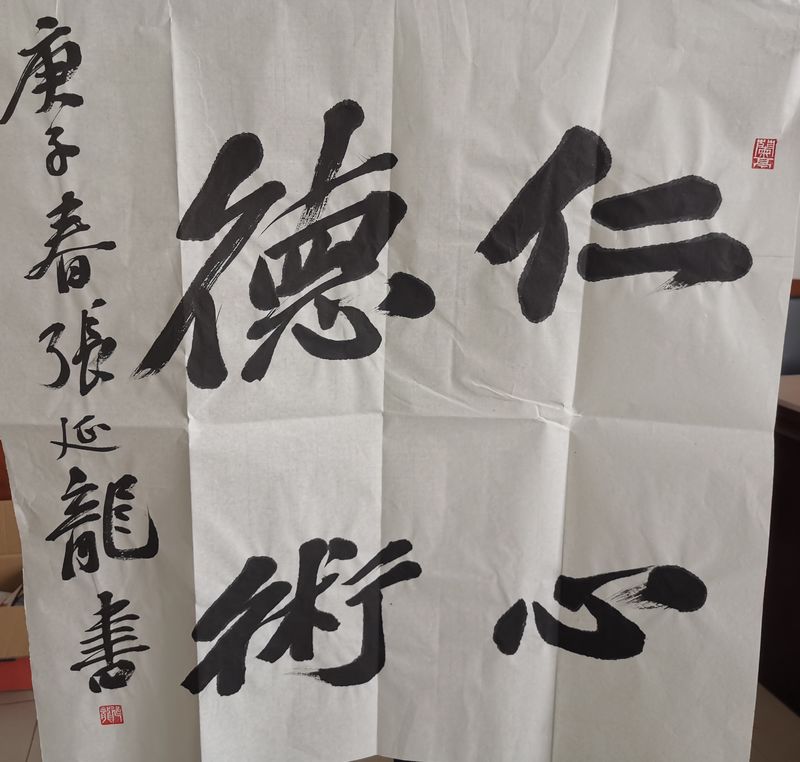 蘭亭
仁心
德術
庚子春張延龍書